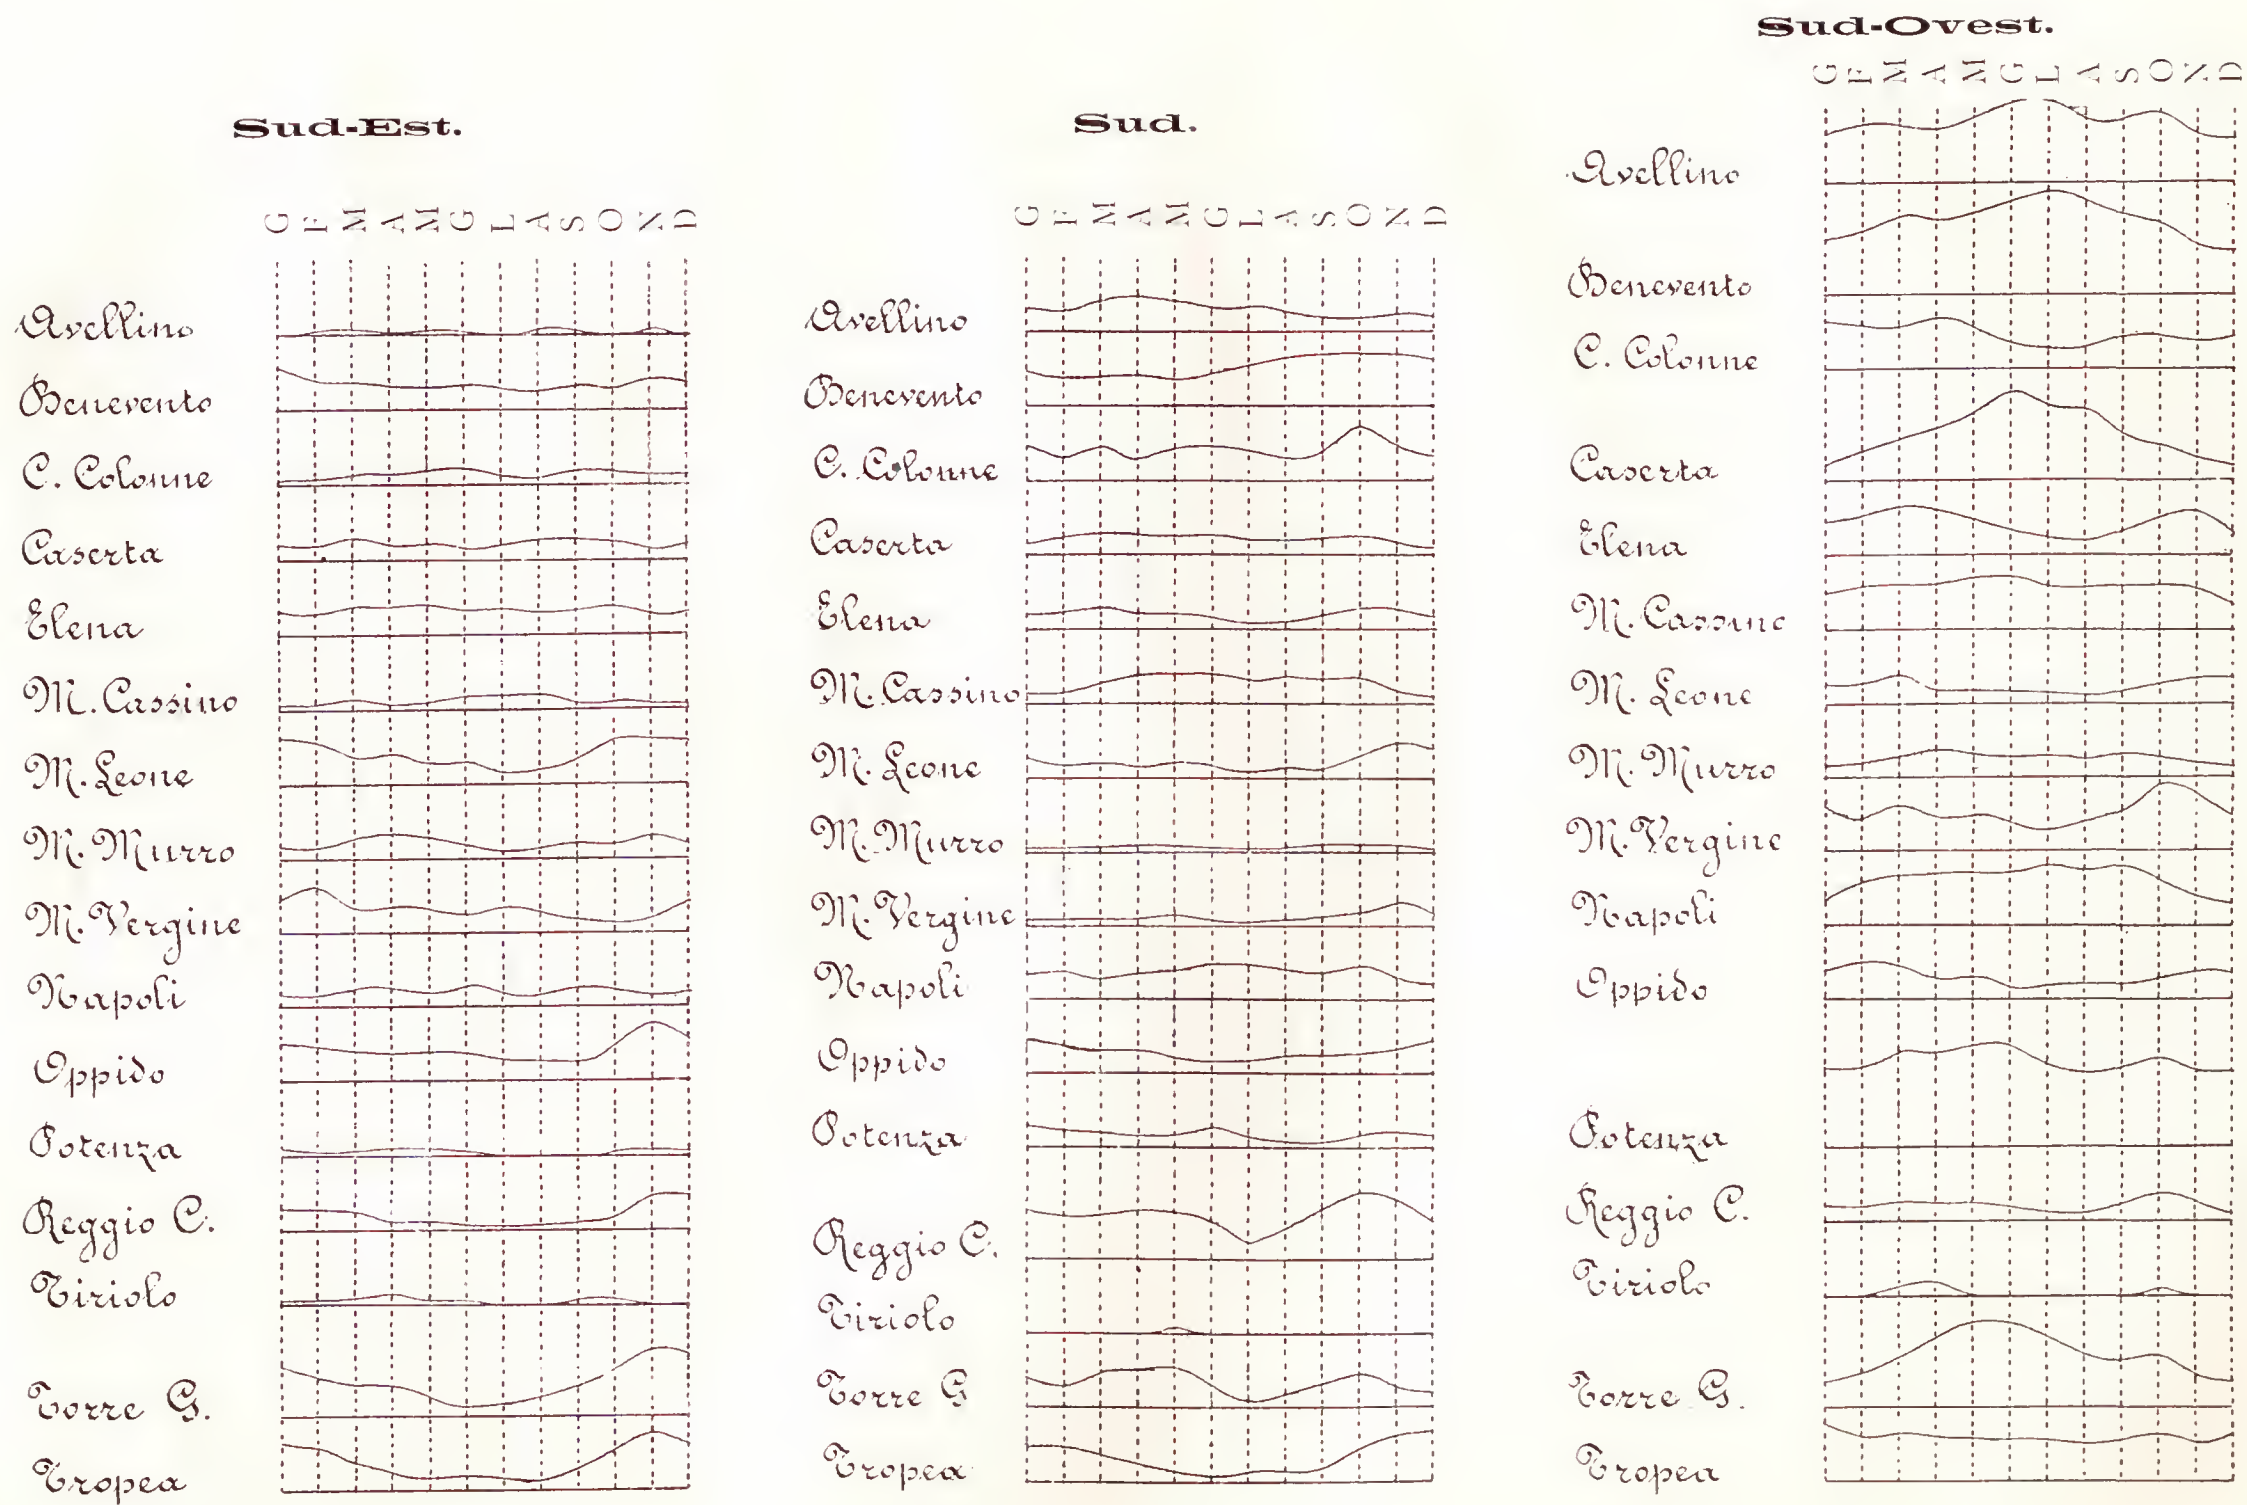 Sud-Est.
G F M A M G L A S O N D
Avellino
Benevento
C. Colonne
Caserta
Elena
M. Cassino
M. Leone
M. Murro
M. Vergine
Napoli
Oppido
Potenza
Reggio C.
Tiriolo
Torre G.
Tropea
Sud.
G F M A M G L A S O N D
Avellino
Benevento
C. Colonne
Caserta
Elena
M. Cassino
M. Leone
M. Murro
M. Vergine
Napoli
Oppido
Potenza
Reggio C.
Tiriolo
Torre G
Tropea
Sud-Ovest.
G F M A M G L A S O N D
Avellino
Benevento
C. Colonne
Caserta
Elena
M. Cassino
M. Leone
M. Murro
M. Vergine
Napoli
Oppido
Potenza
Reggio C.
Tiriolo
Torre G.
Tropea